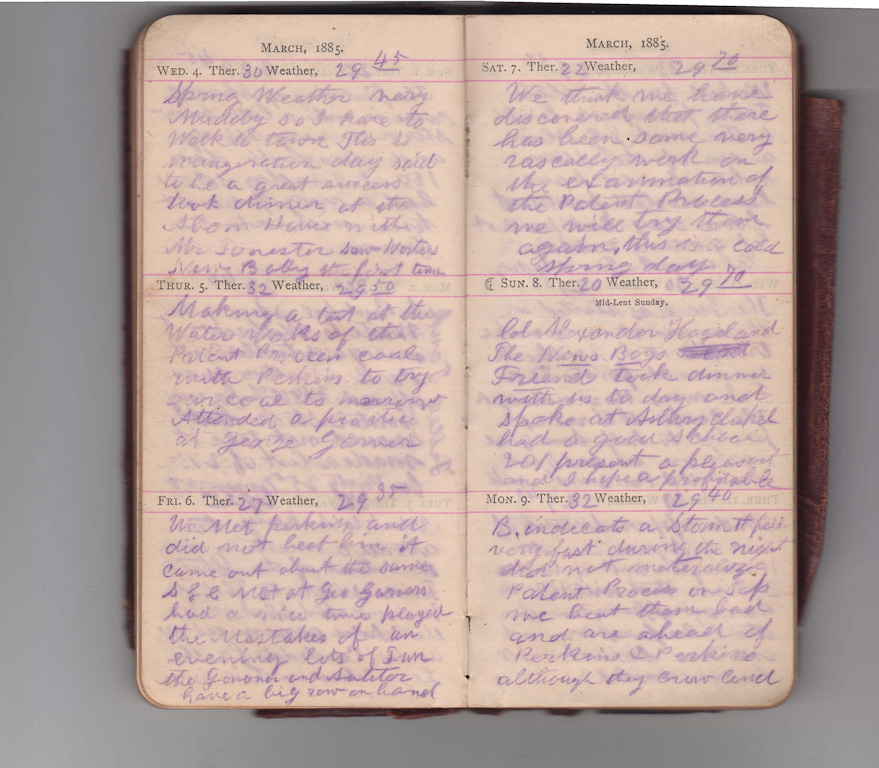 March, 1885.
Wed. 4. Ther. 30 Weather, 29 45
Spring Weather very
Muddy so I have to
Walk to town This is
inauguration day said
to be a great success
took dinner at the
House with
Mr Forrester saw
New Baby the first time
Thur. 5. Ther. 32 Weather, 29 50
Making a test at the
Water Works of the
Patent Process coal
with Perkins to try
our coal to morrow
Attended a practice
at George Garver
Fri. 6. Ther. 27 Weather, 29 35
We Met perkins and
did not beet him it
came out about the same
S L C Met at Geo Garvers
had a nice time played
the Mistakes of an
evening lots of Fun
the Govonor and Auditor
have a big row on hand
March, 1885.
Sat. 7. Ther. 22 Weather, 29 70
We think we have
discovered that there
has been some very
rascally work on
the examination of
the Patent Process
we will try them
again, this is a cold
spring day
Sun. 8. Ther. 20 Weather, 29 70
Mid-Lent Sunday.
Col Alexander Hogeland
The News Boys
Friend took dinner
with us to day and
spoke at Asbury chapel
had a good school
201 present a pleasant
and I hope a profitable
Mon. 9. Ther. 32 Weather, 29 40
B. indicats a Storm it fell
very fast during the night
did not
Patent Process on
we beat them bad
and are ahead of
Perkins & Perkins
although they crow loud